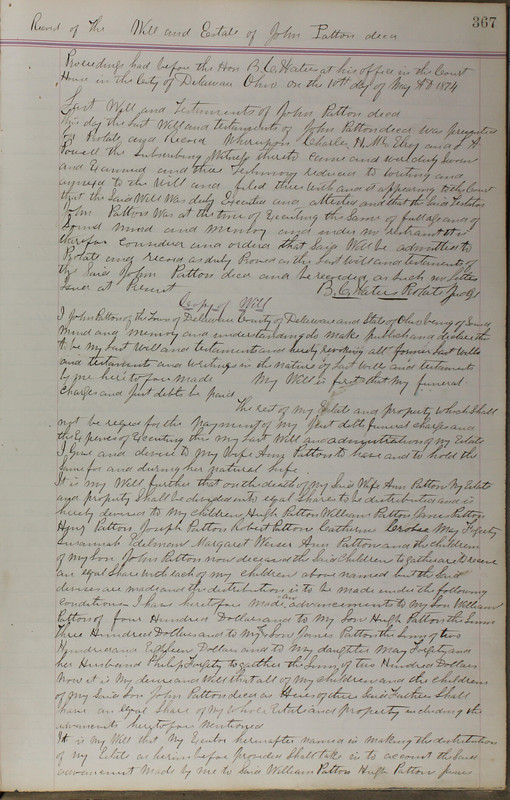 367
Record of The Will and Estate of John Patton decd
Proceedings had before the Hon B. C. Waters at his office in the Court
House in the City of Delaware Ohio on the 10th day of May AD 1874
Last Will and Testaments of John Patton decd
This day the Last Will and testaments of John Patton decd was presented
for Probate and Record Whereupon Charles H. McElroy and
Powell the Subscribing Witness thereto Came and was duly Sworn
and Examined and there testimony reduced to writing and
signed to the Will and filed therewith and it appearing to the Court
that the Said Will was duly Executed and attested and that the Said Testator
John Patton Was at the time of Executing the Same of full age and of
Sound mind and memory and under no restraint it is
therefor Considered and ordered that Said Will be admitted to
Probate and record as duly Proved as the Last Will and testaments of
the Said John Patton decd and be recorded as Such no letters
Issued at Present B. C. Waters Probate Judge
Copy of Will
I John Patton of the Town of Delaware County of Delaware and State of Ohio being of Sound
Mind and Memory and understanding do make publish and declare this
to be my Last Will and testament and hereby revoking all former Last Wills
and testaments and writings in the nature of Last Wills and testament
by me heretofore made My Will is first that my funeral
Charges and Just debts be paid
The rest of my Estate and property which Shall
not be required for the payment of my Just debts funeral charges and
the Expenses of Executing this my Last Will and administration of my Estate
I give and devise to my Wife Ann Patton to have and to hold the
Same for and during her natural life
It is my Will further that on the death of my Said Wife Ann Patton My Estate
and property Shall be divided into equal Shares to be distributed and is
hereby devised to My Children Hugh Patton William Patton James Patton
Patton Joseph Patton Robert Patton Catherine Crobse May
Susannah Edelman Margaret Weiser Ann Patton and the children
of my Son John Patton now deceased the Said Children together are to receive
an equal Share with each of my children above named but the Said
devises are made and the distribution is to be made under the following
Conditions I have heretofore made an advancement to My Son William
Patton of four Hundred Dollars and to My Son Hugh Patton the Sum
Three Hundred Dollars and to My Son James Patton the Sum of two
Hundred and Eighteen Dollars and to My daughter May and
her Husband Philip together the Sum of two Hundred Dollars
Now it is My desire and Will that all of my Children and the Children
of my Said Son John Patton decd as Heirs of there Said Father Shall
have an Equal Share of My whole Estate and property including the
advancements heretofore mentioned
It is my Will that My Executor hereinafter named in making the distribution
of my Estate as hereinbefore provided Shall take in to account the Said
advancement Made by me to Said William Patton Hugh Patton James